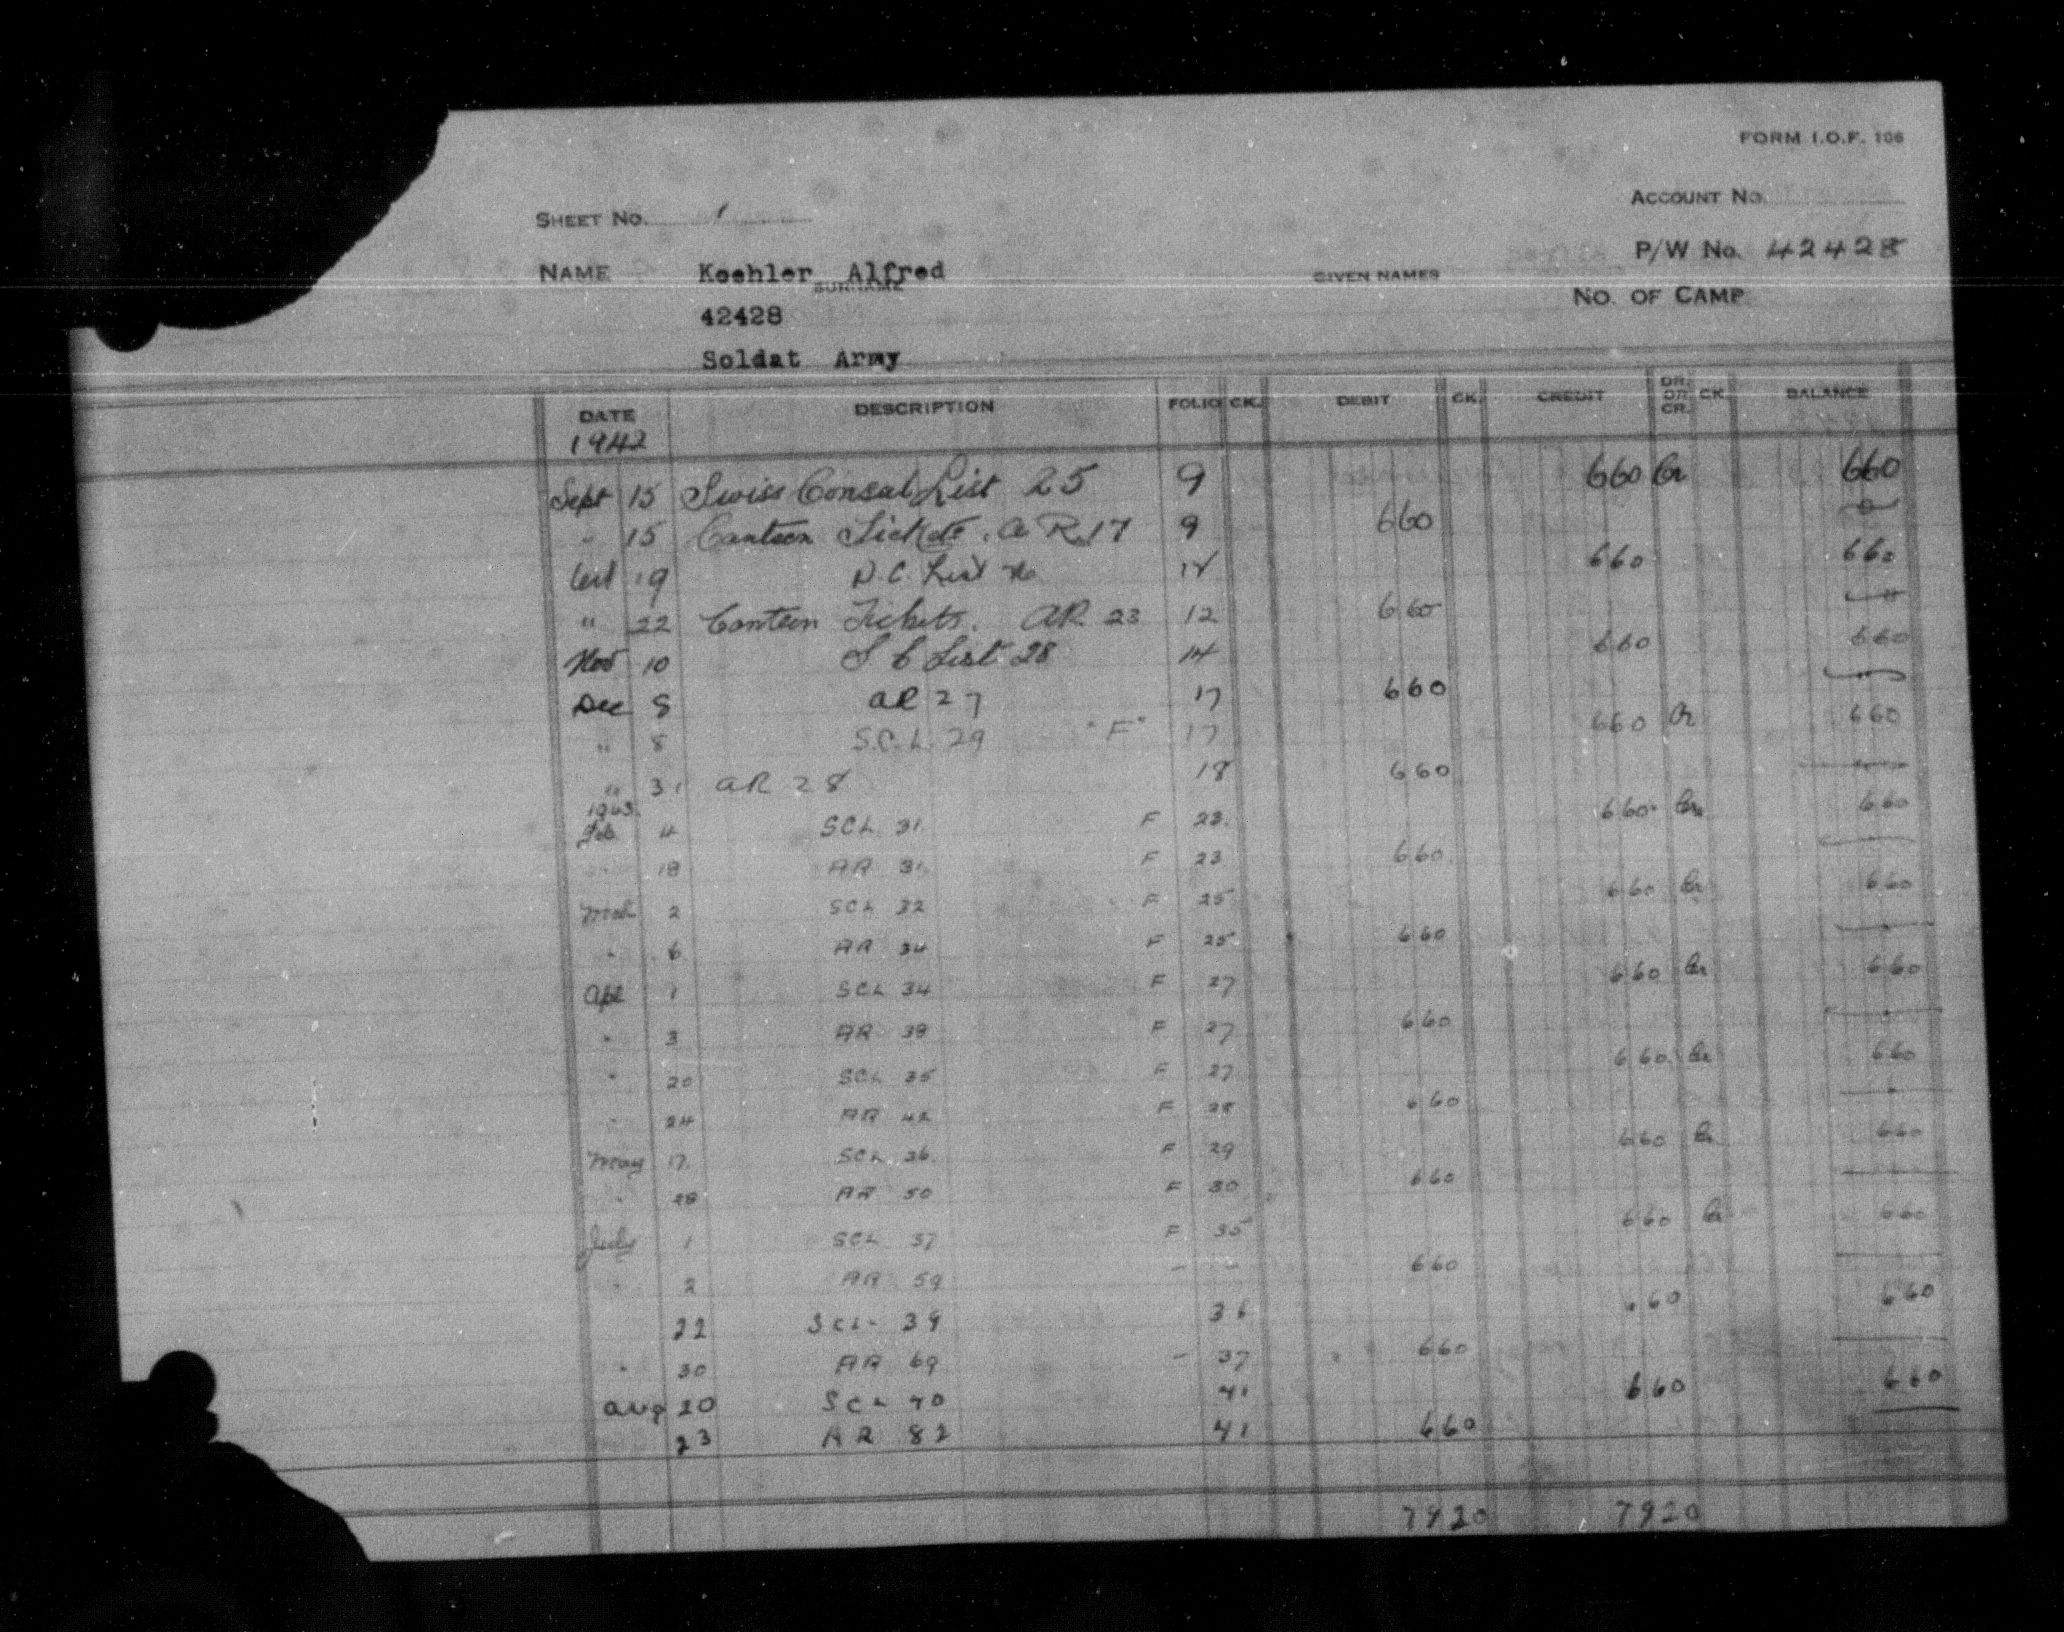 FORM I.O.F. 106
SHEET NO. 1
ACCOUNT NO.
P/W No. 42428
NAME Koehler Alfred
SURNAME
GIVEN NAMES
NO. OF CAMP
42428
Soldat Army
DATE DESCRIPTION FOLIO CK. DEBIT CK. CREDIT DR. OR CR. CK. BALANCE
1942
Sept 15 Swiss Consul List 25 9 660 Cr 660
" 15 Canteen Tickets. A R 17 9 660 0
19 List 660 660
" 22 Canteen Tickets. AR 23 12 660
Nov 10 S C List 28 14 660 660
Dec 8 AR 27 17 660
" 8 S.C.L. 29 "F" 17 660 Cr 660
" 31 AR 28 18 660
1943
Feb 4 SCL 31 F 23 660 Cr 660
" 18 AR 31 F 23 660
Mch 2 SCL 32 F 25 660 Cr 660
" 6 AR 34 F 25 660
Apl 1 SCL 34 F 27 660 Cr 660
" 3 AR 39 F 27 660
" 20 SCL 35 F 27 660 Cr 660
" 24 AR 42 F 28 660
May 17 SCL 36 F 29 660 Cr 660
" 28 AR 50 F 30 660
July 1 SCL 37 F 35 660 Cr 660
" 2 AR 59 - - 660
22 SCL 39 36 660 660
" 30 AR 69 - 37 660
Aug 20 SCL 40 41 660 660
23 AR 82 41 660
7920 7920